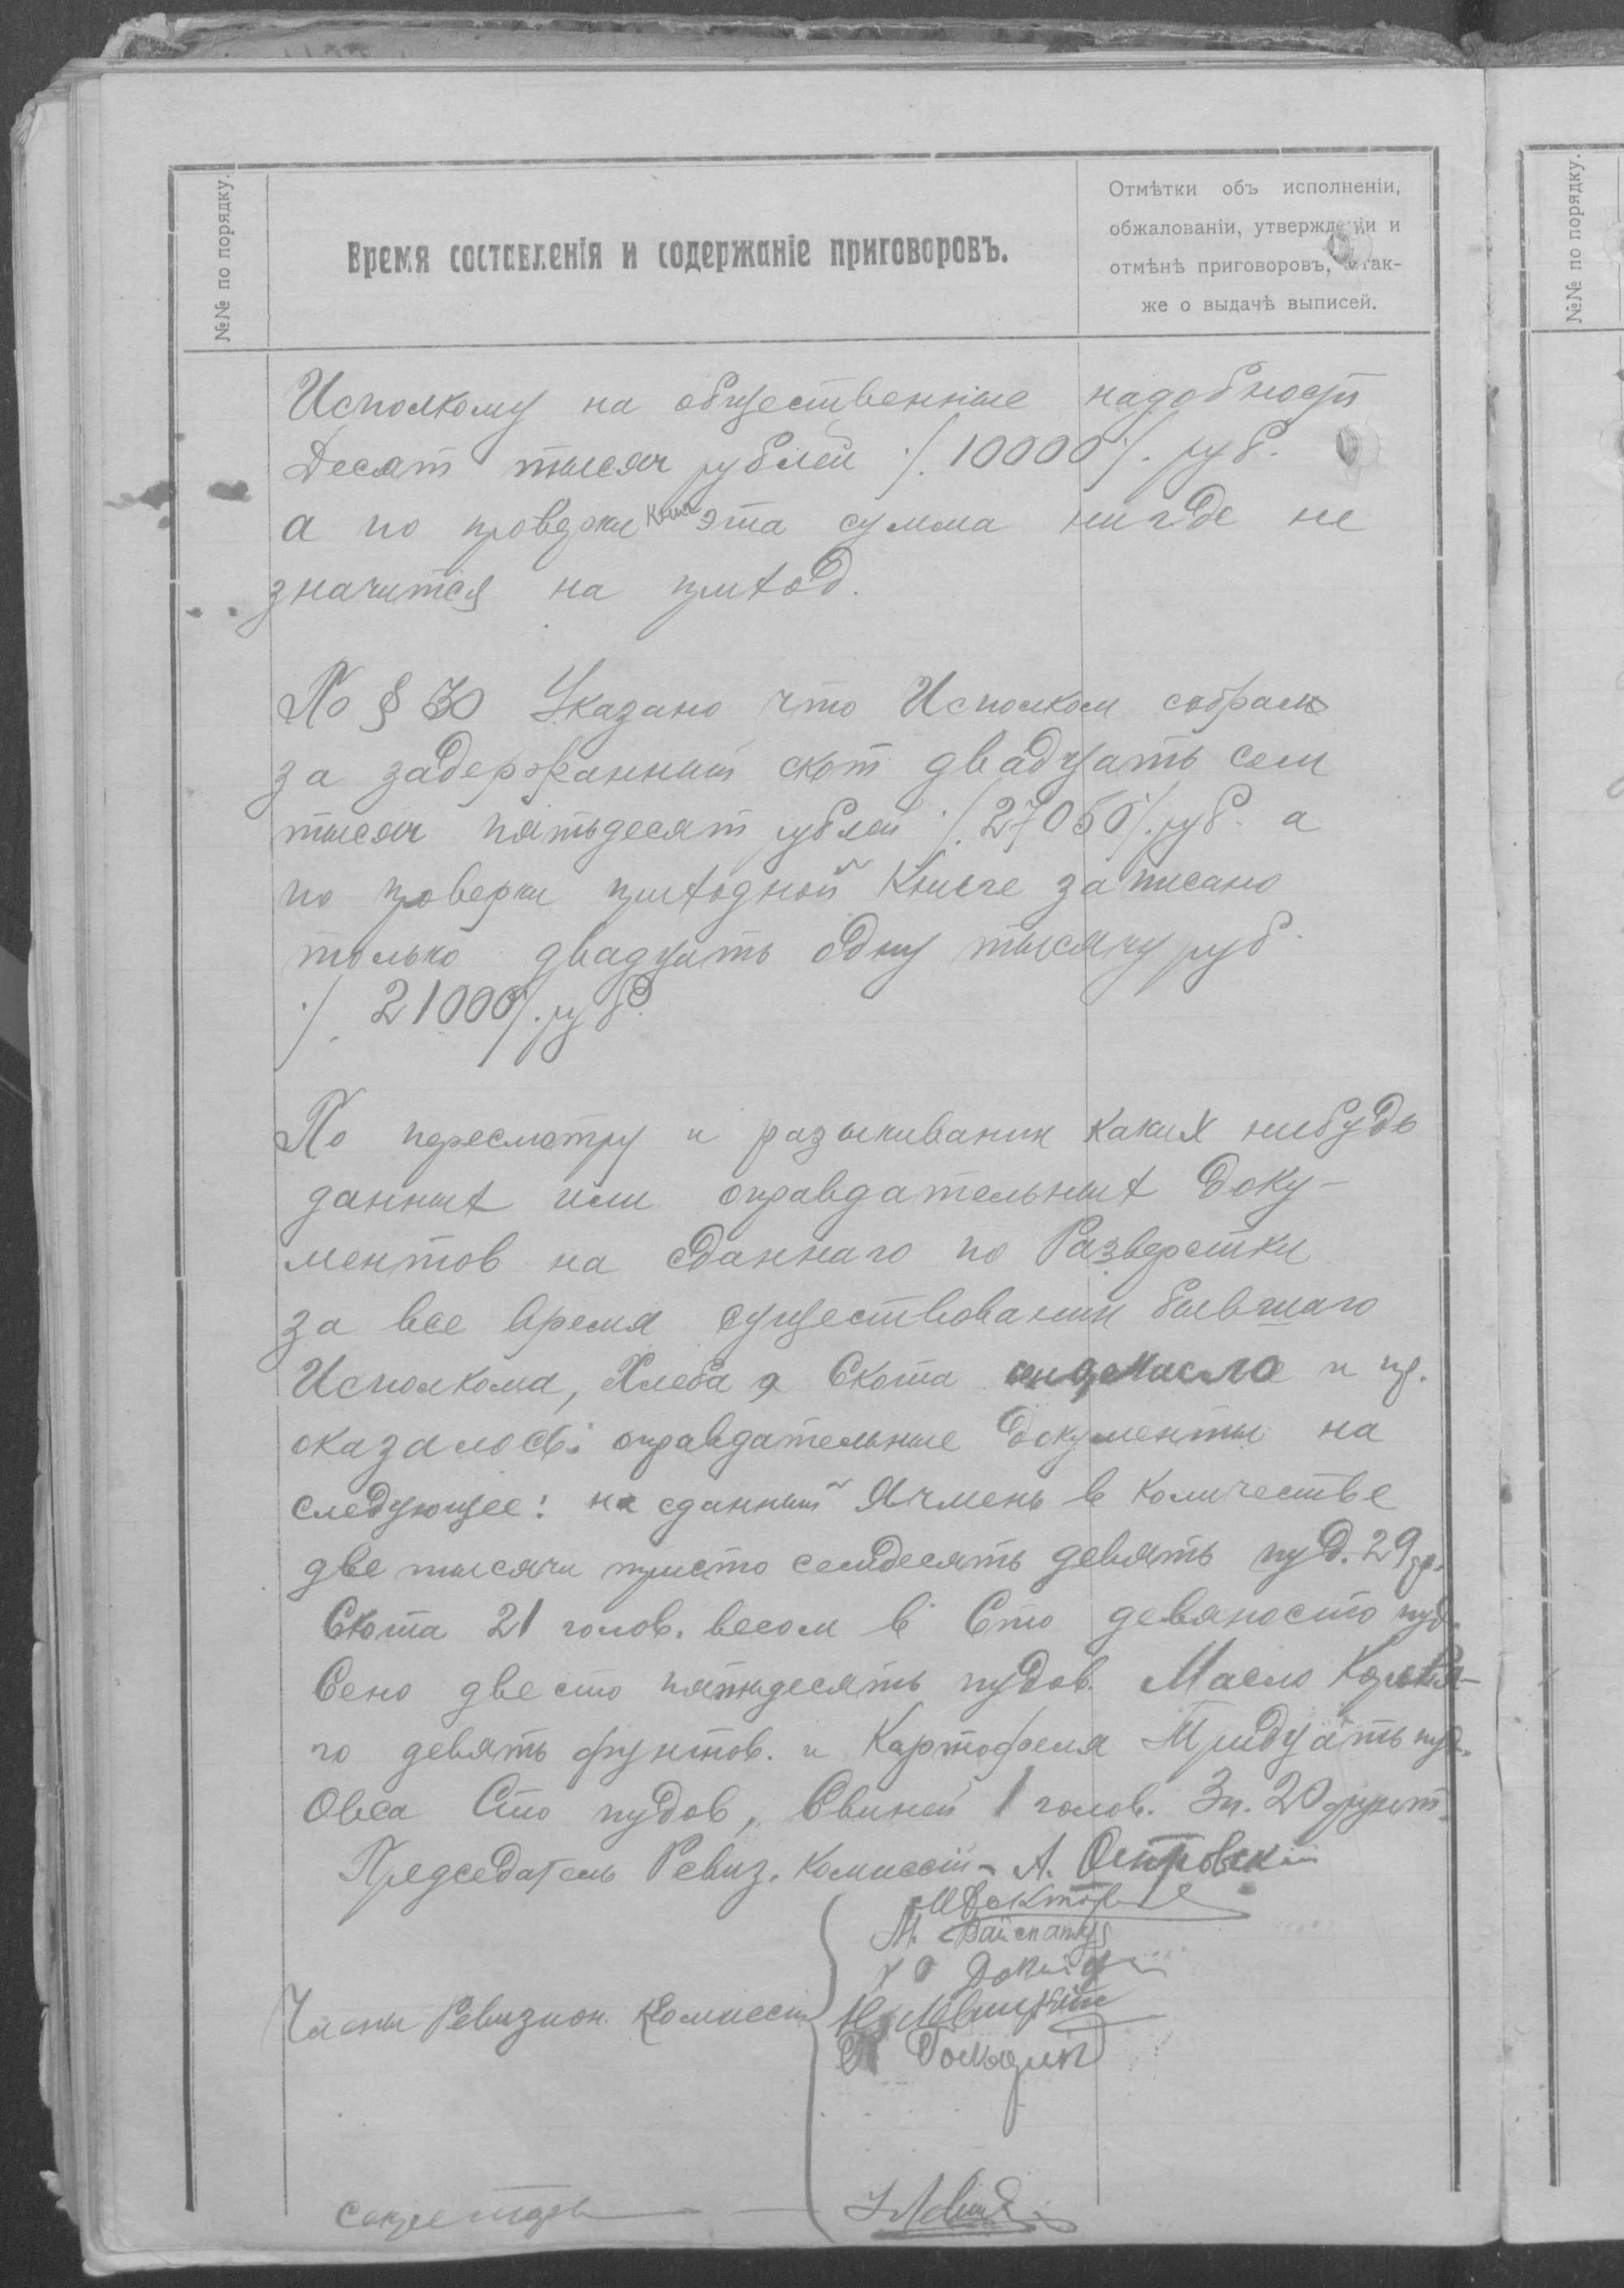 №№ по порядку.
Время составленія и содержаніе приговоровъ.
Отмѣтки объ исполненіи,
обжалованіи, утвержденіи и
отмѣнѣ приговоровъ, а так-
же о выдачѣ выписей.
№№ по порядку.
Исполкому на общественные надобност
Десят тысяч рублей ./. 10000 ./. руб.
а по проверки книг эта сумма нигде не
значится на приход.
По § 30 Указано что Исполком собрал
за задержанный скот двадцать сем
тысяч пятьдесят рублей ./. 27050 ./. руб. а
по проверки приходной Книге записано
только двадцать одну тысячу руб.
./. 21000 ./. руб.
По пересмотру и разыкивании каких нибудь
данных или оправдательных Доку-
ментов на сданнаго по Разверстки
за все время существовании бывшаго
Исполкома, Хлеба Скота Масло и пр.
оказалось: оправдательные Документы на
следующее: на сданный Ячмень в количестве
две тысячи тристо семдесять девять пуд. 29 ф.
Скота 21 голов. весом в Сто девяносто пуд.
Сено двесто пятьдесять пудов. Масло Коровя-
го девять фунтов. и Картофеля Тридцать пуд.
Овса Сто пудов, Свиней 1 голов. 3 п. 20 фунт.
Председатель Ревиз. комиссіи - А. Островский
М.
Члены Ревизион. Комиссіи
Левицкий
Секретарь